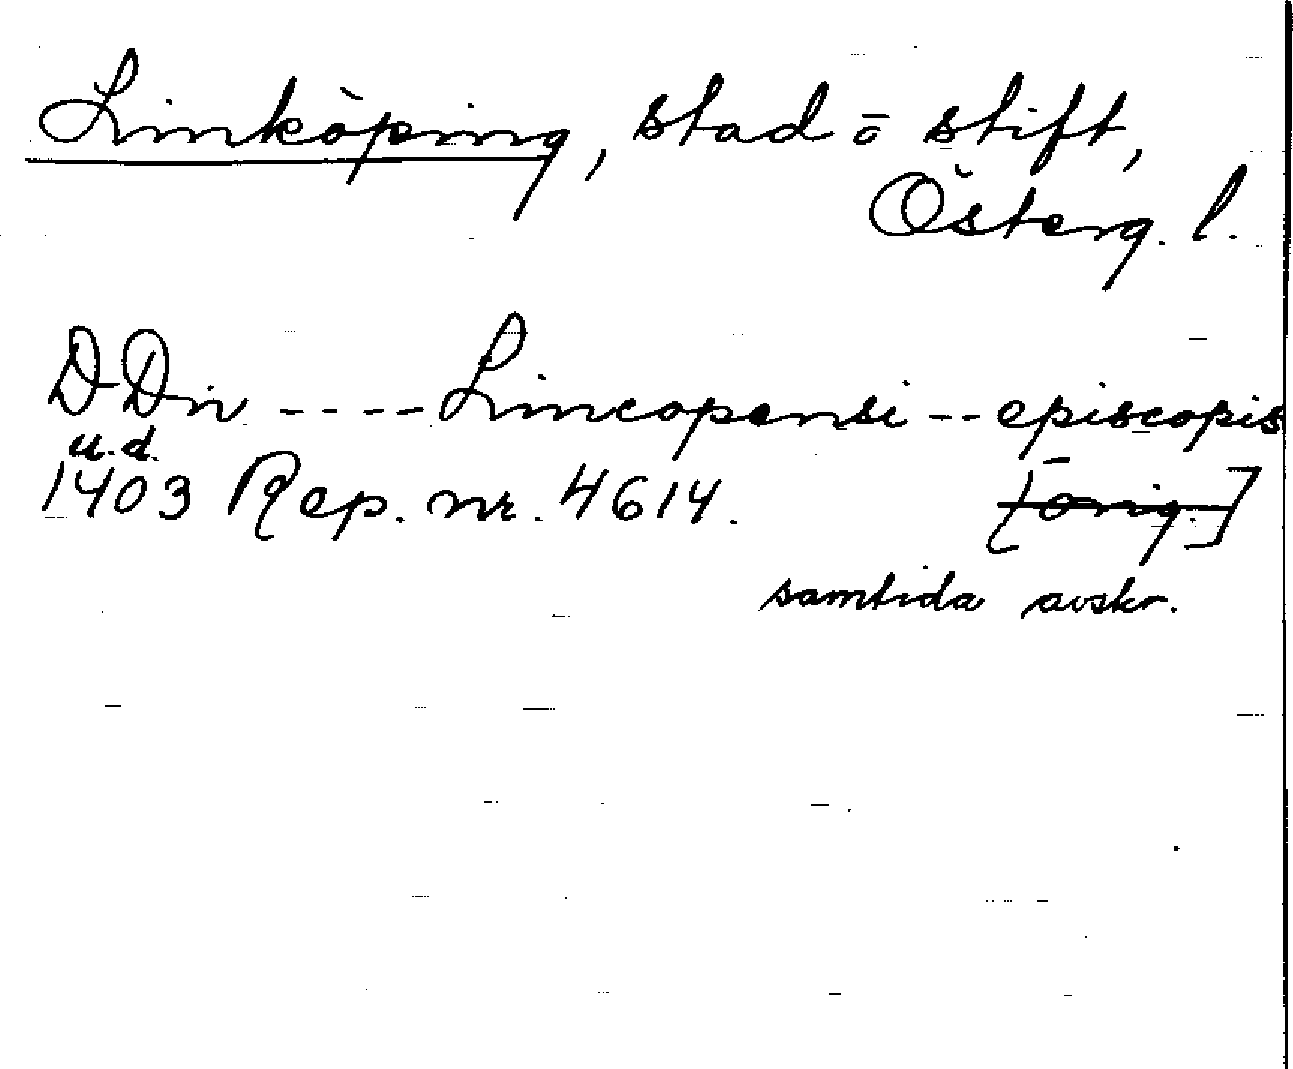 Linköping, stad ō stift,
Österg. l.
DDn ---- Lincopensi -- episcopis
u.d.
1403 Rep. nr. 4614. [orig.]
samtida avskr.